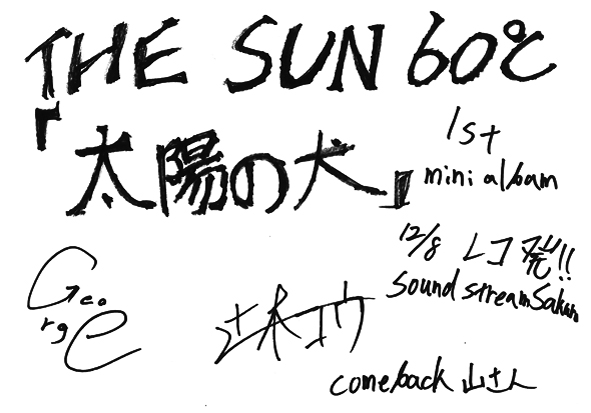 THE SUN 60℃
『太陽の犬』
1st
mini albam
12/8 レコ発!!
sound stream sakura
George
comeback 山さん